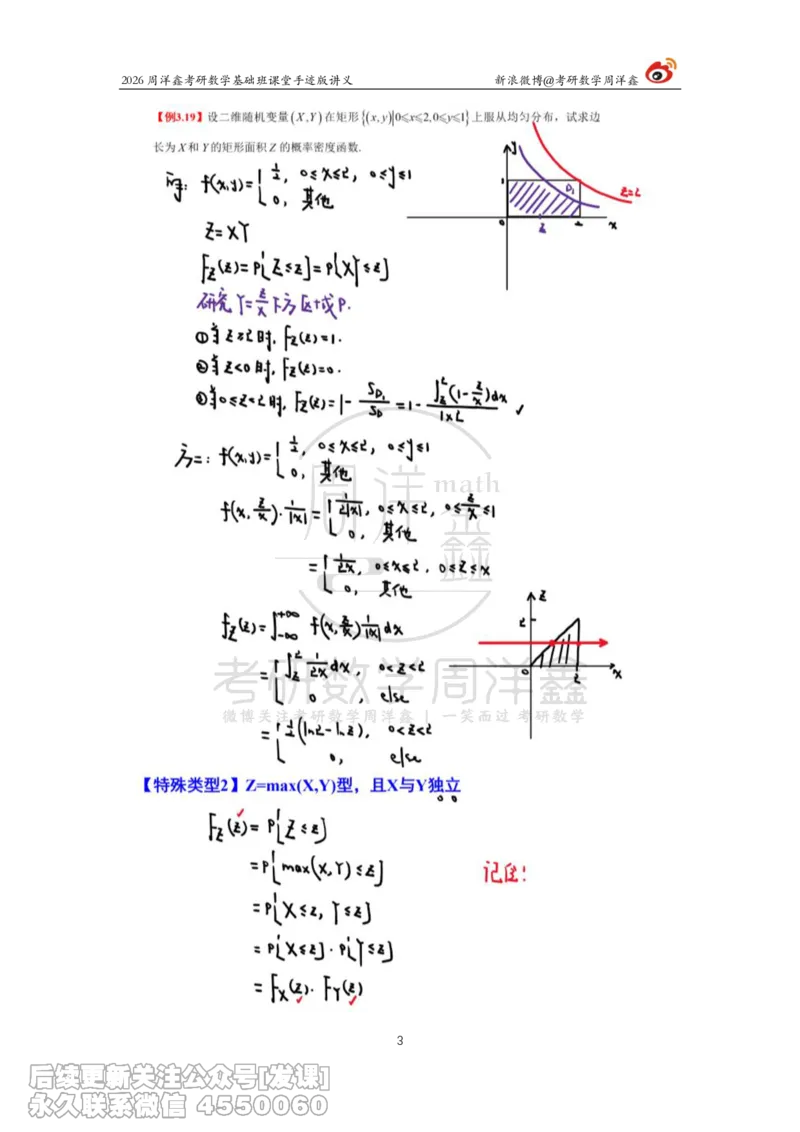 2026 周洋鑫考研数学基础班课堂手迹版讲义 新浪微博@考研数学周洋鑫
【例3.19】设二维随机变量 (X,Y) 在矩形 {(x,y)|0⩽x⩽2,0⩽y⩽1} 上服从均匀分布，试求边
长为 X 和 Y 的矩形面积 Z 的概率密度函数.
f(x,y)={1/2, 0≤x≤2, 0≤y≤1
0, 其他
y
1
D₁
Z=2
0 z 2 x
Z=XY
F_Z(z)=P{Z≤z}=P{XY≤z}
研究Y=z/x下方区域P.
①当z≥2时, F_Z(z)=1.
②当z<0时, F_Z(z)=0.
③当0≤z<2时, F_Z(z)=1-S_{D₁}/S_D=1-∫_z^2(1-z/x)dx/(1×2) ✓
方二: f(x,y)={1/2, 0≤x≤2, 0≤y≤1
0, 其他
f(x,z/x)·1/|x|={1/(2|x|), 0≤x≤2, 0≤z/x≤1
0, 其他
={1/(2x), 0≤x≤2, 0≤z≤x
0, 其他
z
2
0 2 x
f_Z(z)=∫_{-∞}^{+∞} f(x,z/x)1/|x|dx
={∫_z^2 1/(2x)dx, 0<z<2
0, else
={1/2(ln2-lnz), 0<z<2
0, else
周洋鑫
math
考研数学周洋鑫
微博关注考研数学周洋鑫 | 一笑而过 考研数学
【特殊类型2】Z=max(X,Y)型，且X与Y独立
F_Z(z)=P{Z≤z}
=P{max(X,Y)≤z}
记住!
=P{X≤z, Y≤z}
=P{X≤z}·P{Y≤z}
=F_X(z)·F_Y(z)
3
后续更新关注公众号[发课]
永久联系微信 4550060